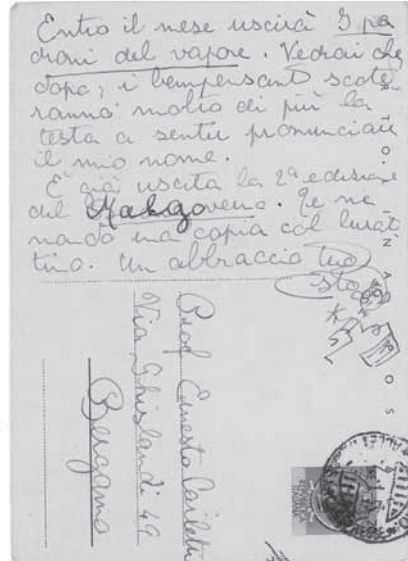 Entro il mese uscirà I pa
droni del vapore. Vedrai che
dopo, i benpensanti scote
ranno molto di più la
testa a sentir pronunciare
il mio nome.
È già uscita la 2ª edizione
del Malgoverno. Te ne
mando una copia col burat
tino. Un abbraccio tuo
Prof Ernesto
Via Ghislandi 49
Bergamo